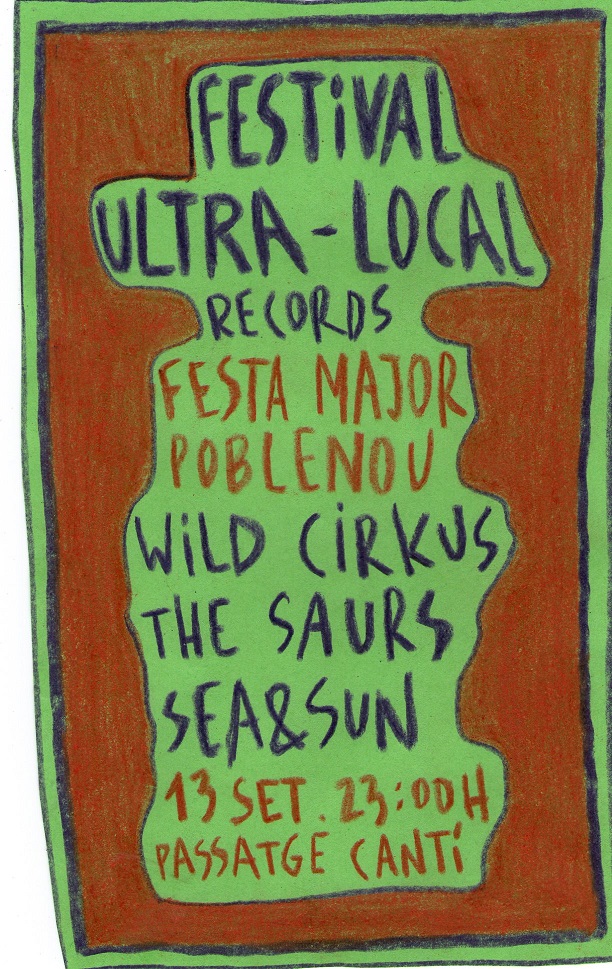 FESTIVAL
ULTRA-LOCAL
RECORDS
FESTA MAJOR
POBLENOU
WILD CIRKUS
THE SAURS
SEA&SUN
13 SET. 23:00H
PASSATGE CANTÍ